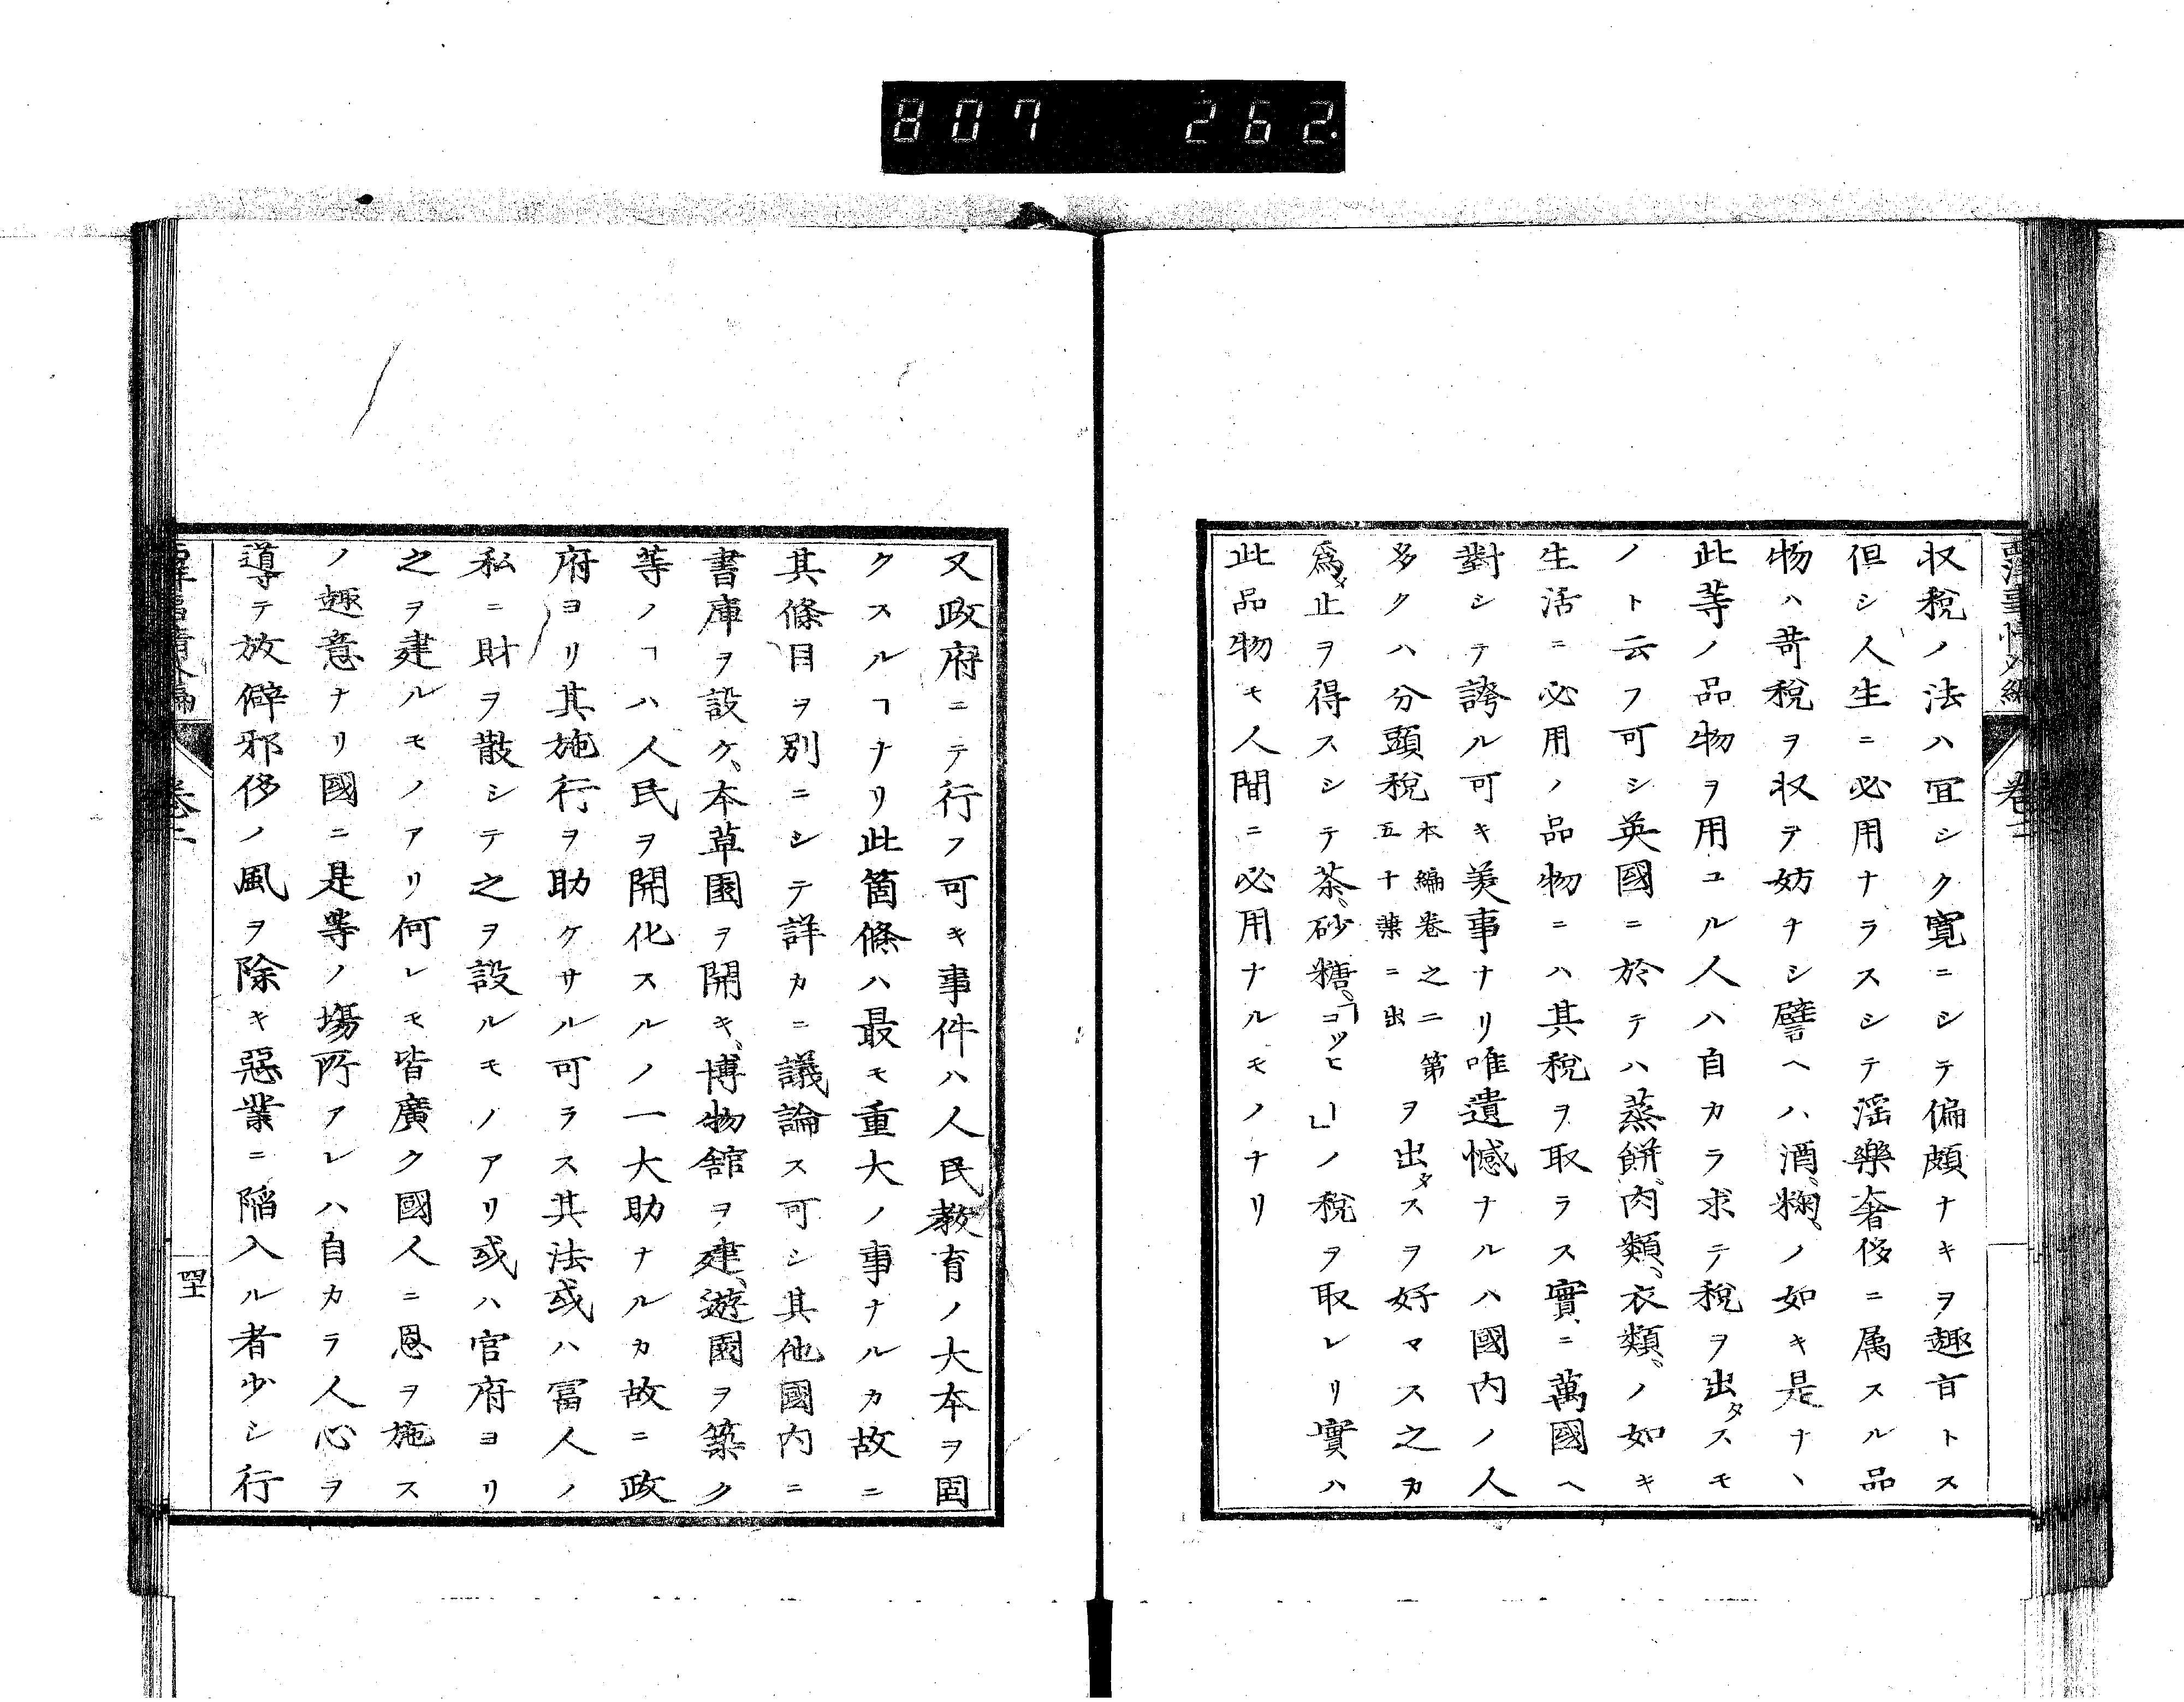 807 262.
西洋事情外編 卷二
収税ノ法ハ宜シク寛ニシテ偏頗ナキヲ趣旨トス
但シ人生ニ必用ナラスシテ淫樂奢侈ニ属スル品
物ハ苛税ヲ収ヲ妨ナシ譬ヘハ酒、麹、ノ如キ是ナヽ
此等ノ品物ヲ用ユル人ハ自カラ求テ税ヲ出タスモ
ノト云フ可シ英國ニ於テハ蒸餅、肉類、衣類、ノ如キ
生活ニ必用ノ品物ニハ其税ヲ取ラス實ニ萬國ヘ
對シテ誇ル可キ美事ナリ唯遺憾ナルハ國内ノ人
多クハ分頭税本編卷之二第五十葉ニ出ヲ出タスヲ好マス之カ
爲メ止ヲ得スシテ茶、砂糖、「コッヒー」ノ税ヲ取レリ實ハ
此品物モ人間ニ必用ナルモノナリ
又政府ニテ行フ可キ事件ハ人民教育ノ大本ヲ固
クスルヿナリ此箇條ハ最モ重大ノ事ナルカ故ニ
其條目ヲ別ニシテ詳カニ議論ス可シ其他國内ニ
書庫ヲ設ケ、本草園ヲ開キ、博物館ヲ建、遊園ヲ築ク
等ノヿハ人民ヲ開化スルノ一大助ナルカ故ニ政
府ヨリ其施行ヲ助ケサル可ラス其法或ハ冨人ノ
私ニ財ヲ散シテ之ヲ設ルモノアリ或ハ官府ヨリ
之ヲ建ルモノアリ何レモ皆廣ク國人ニ恩ヲ施ス
ノ趣意ナリ國ニ是等ノ塲所アレハ自カラ人心ヲ
導テ放僻邪侈ノ風ヲ除キ惡業ニ陥入ル者少シ行
卷二